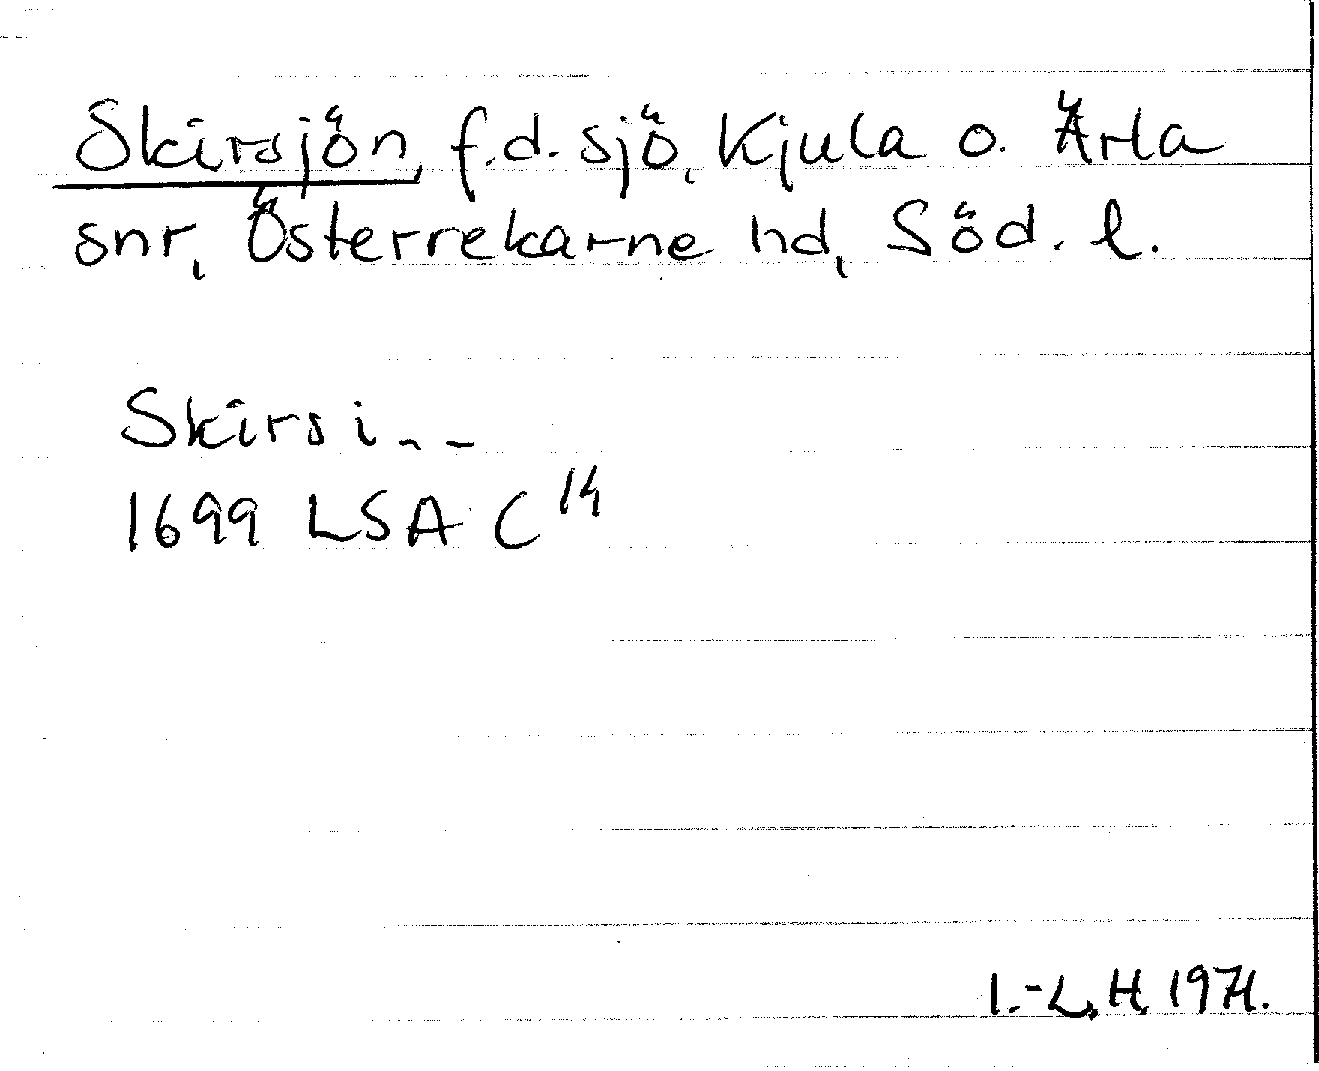 Skirsjön, f.d. sjö, Kjula o. Ärla
snr, Österrekarne hd, Söd. l.
Skirsi--
1699 LSA C¹⁴
I.-L. H. 1971.